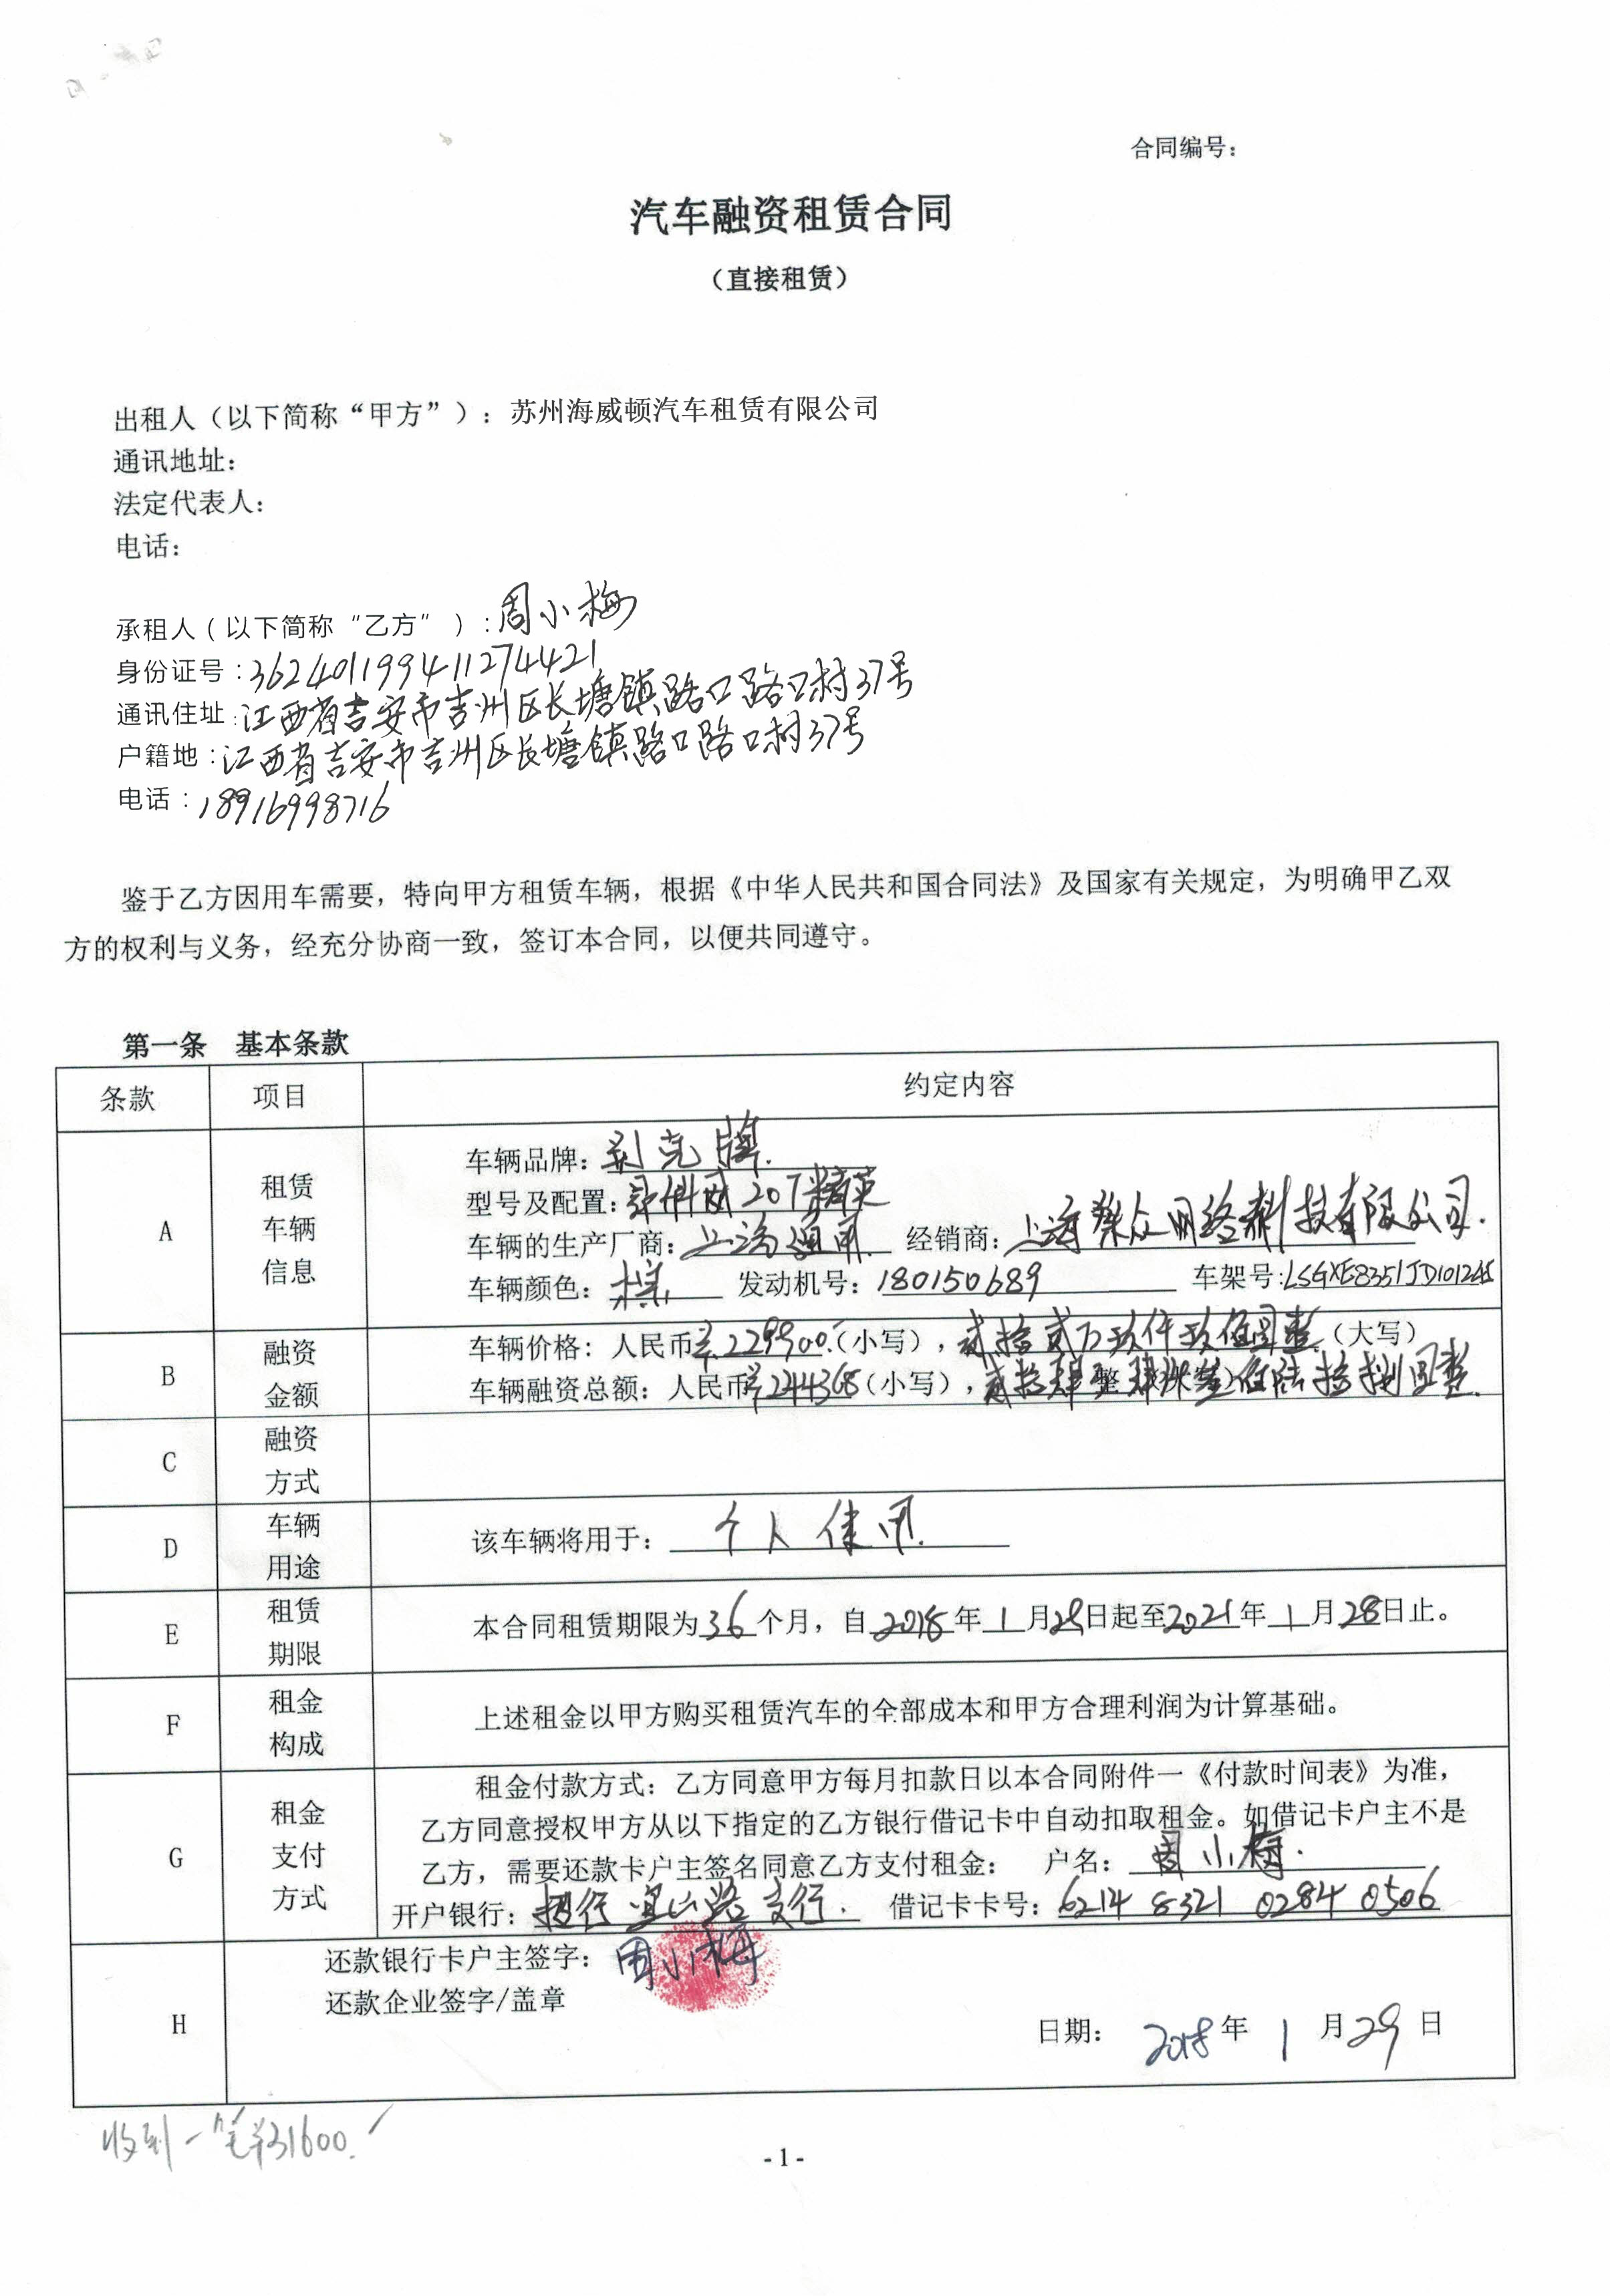 合同编号：
汽车融资租赁合同
（直接租赁）
出租人（以下简称“甲方”）：苏州海威顿汽车租赁有限公司
通讯地址：
法定代表人：
电话：
承租人（以下简称“乙方”）：周小梅
身份证号：362401199411274421
通讯住址：江西省吉安市吉州区长塘镇路口路口村37号
户籍地：江西省吉安市吉州区长塘镇路口路口村37号
电话：18916998716
鉴于乙方因用车需要，特向甲方租赁车辆，根据《中华人民共和国合同法》及国家有关规定，为明确甲乙双
方的权利与义务，经充分协商一致，签订本合同，以便共同遵守。
第一条 基本条款
条款 项目 约定内容
A 租赁车辆信息
车辆品牌：别克牌.
型号及配置：昂科威 20T精英
车辆的生产厂商：上海通用 经销商：上海聚众网络科技有限公司.
车辆颜色：棕 发动机号：180150689 车架号：LSGXE8351JD101245
B 融资金额
车辆价格：人民币¥229900.（小写），贰拾贰万玖仟玖佰圆整（大写）
车辆融资总额：人民币¥244368（小写），贰拾肆 整 佰陆拾捌圆整
C 融资方式
D 车辆用途
该车辆将用于：个人使用.
E 租赁期限
本合同租赁期限为36个月，自2018年1月29日起至2021年1月28日止。
F 租金构成
上述租金以甲方购买租赁汽车的全部成本和甲方合理利润为计算基础。
G 租金支付方式
租金付款方式：乙方同意甲方每月扣款日以本合同附件一《付款时间表》为准，
乙方同意授权甲方从以下指定的乙方银行借记卡中自动扣取租金。如借记卡户主不是
乙方，需要还款卡户主签名同意乙方支付租金： 户名：周小梅.
开户银行：招行宜山路支行. 借记卡卡号：6214 8321 0284 0506
H
还款银行卡户主签字：周小梅
还款企业签字/盖章
日期：2018年1月29日
收到一笔¥31600.
-1-